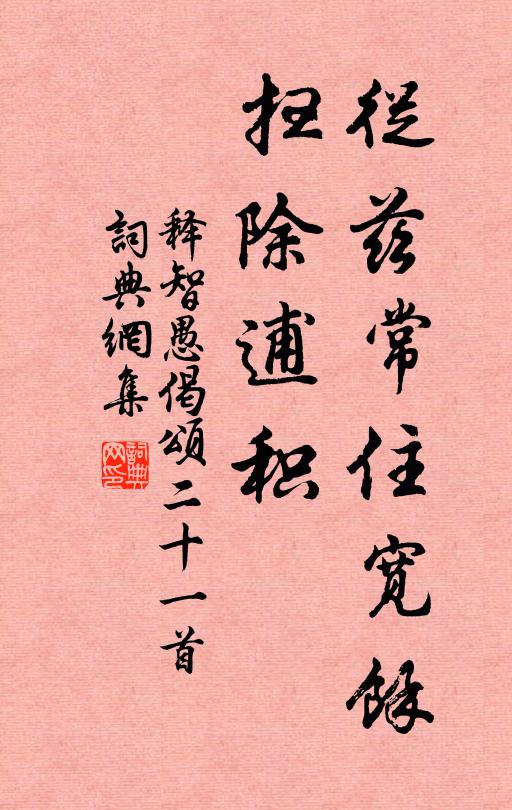 從茲常住寬餘
扫除逋积
释智愚偈頌二十一首
詞典網集
詞典网印